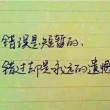 错误是短暂的,
错过却是永远的遗憾